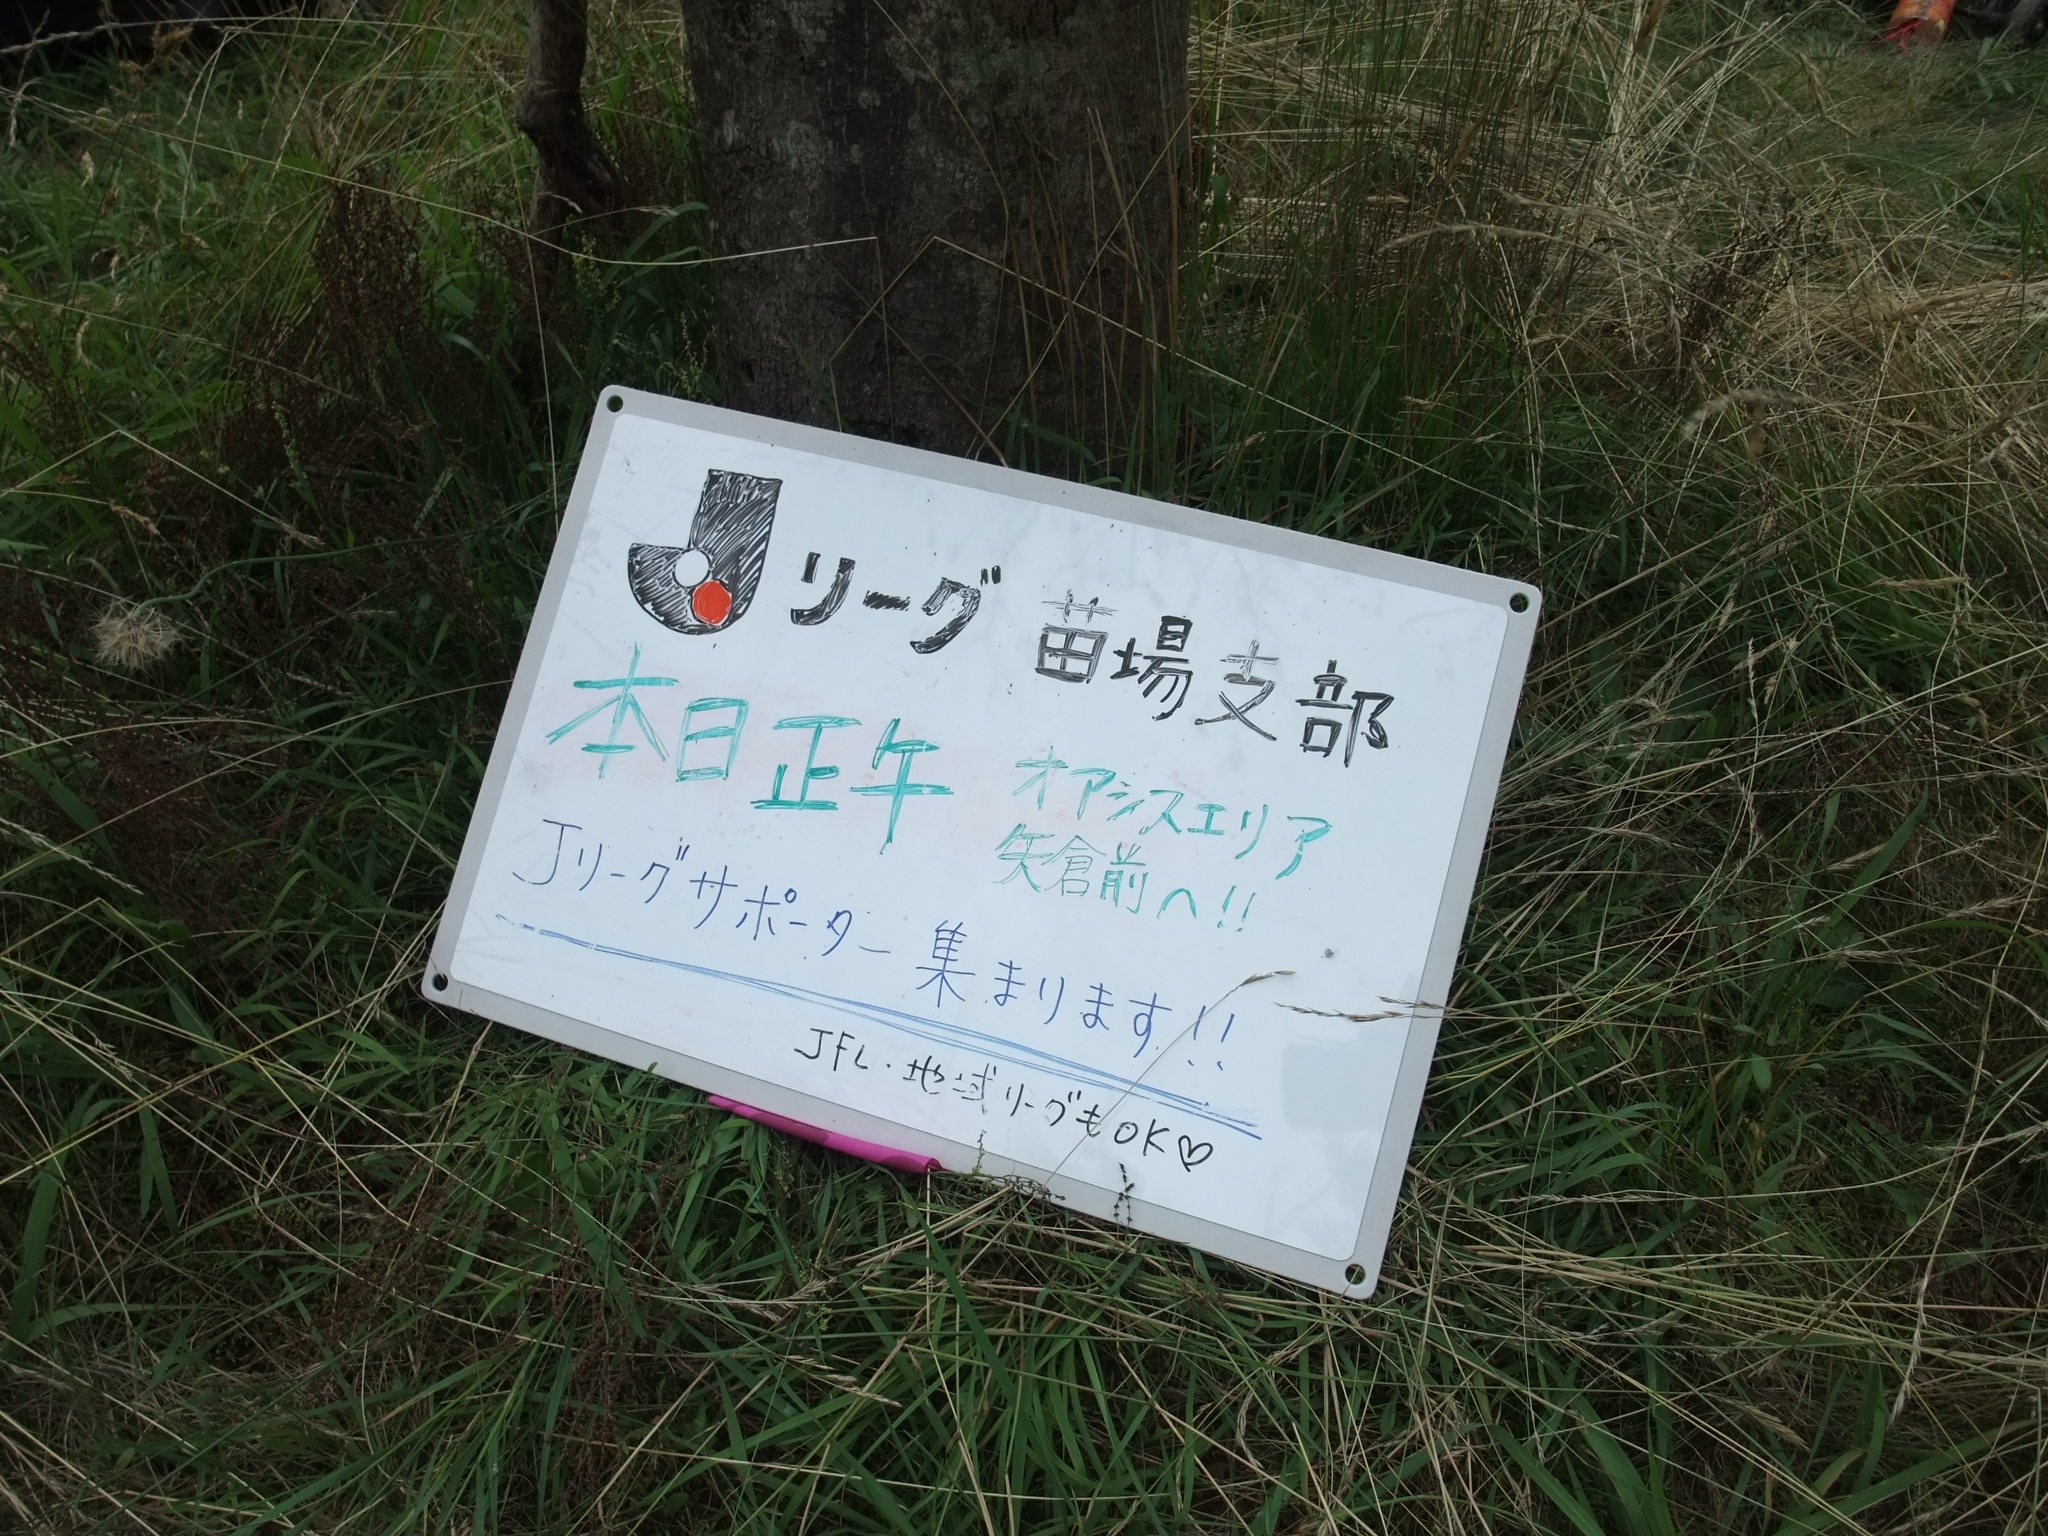 Jリーグ 苗場支部
本日正午 オアシスエリア
矢倉前へ!!
Jリーグサポーター集まります!!
JFL・地域リーグもOK♡